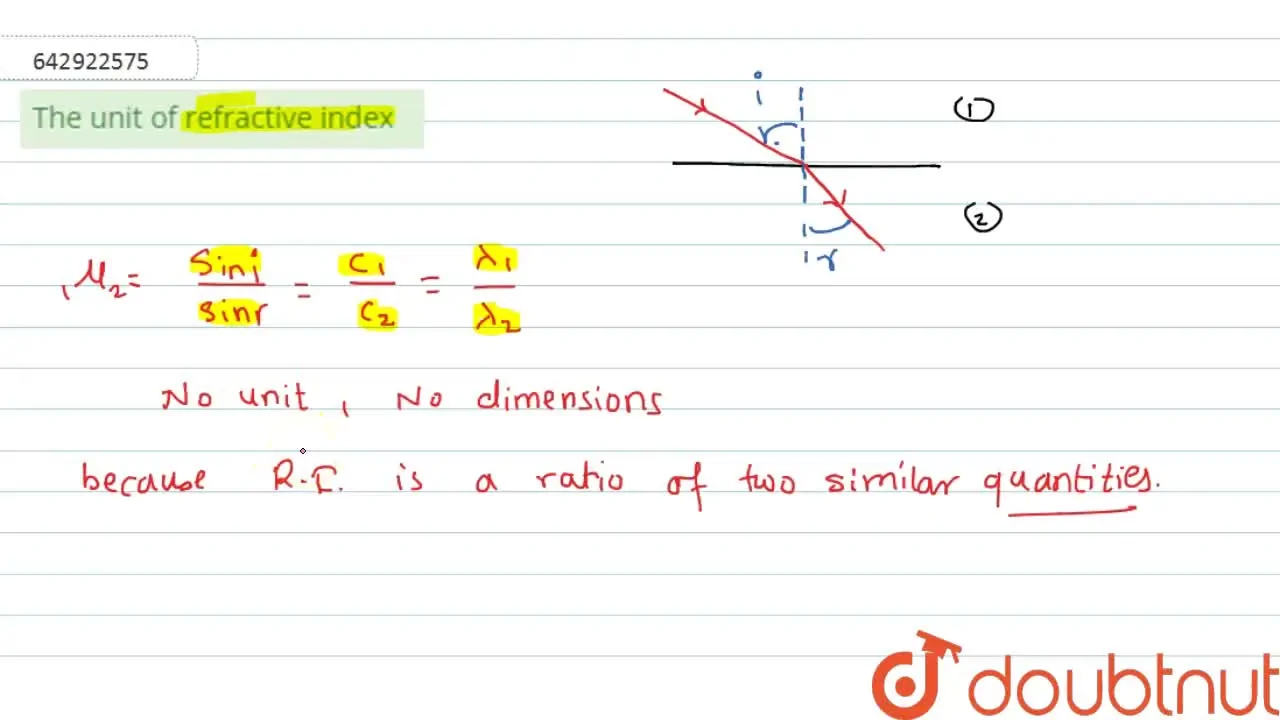 642922575
The unit of refractive index
i
①
②
r
₁μ₂ = sin i / sin r = c₁ / c₂ = λ₁ / λ₂
No unit, No dimensions
because R.I. is a ratio of two similar quantities.
doubtnut